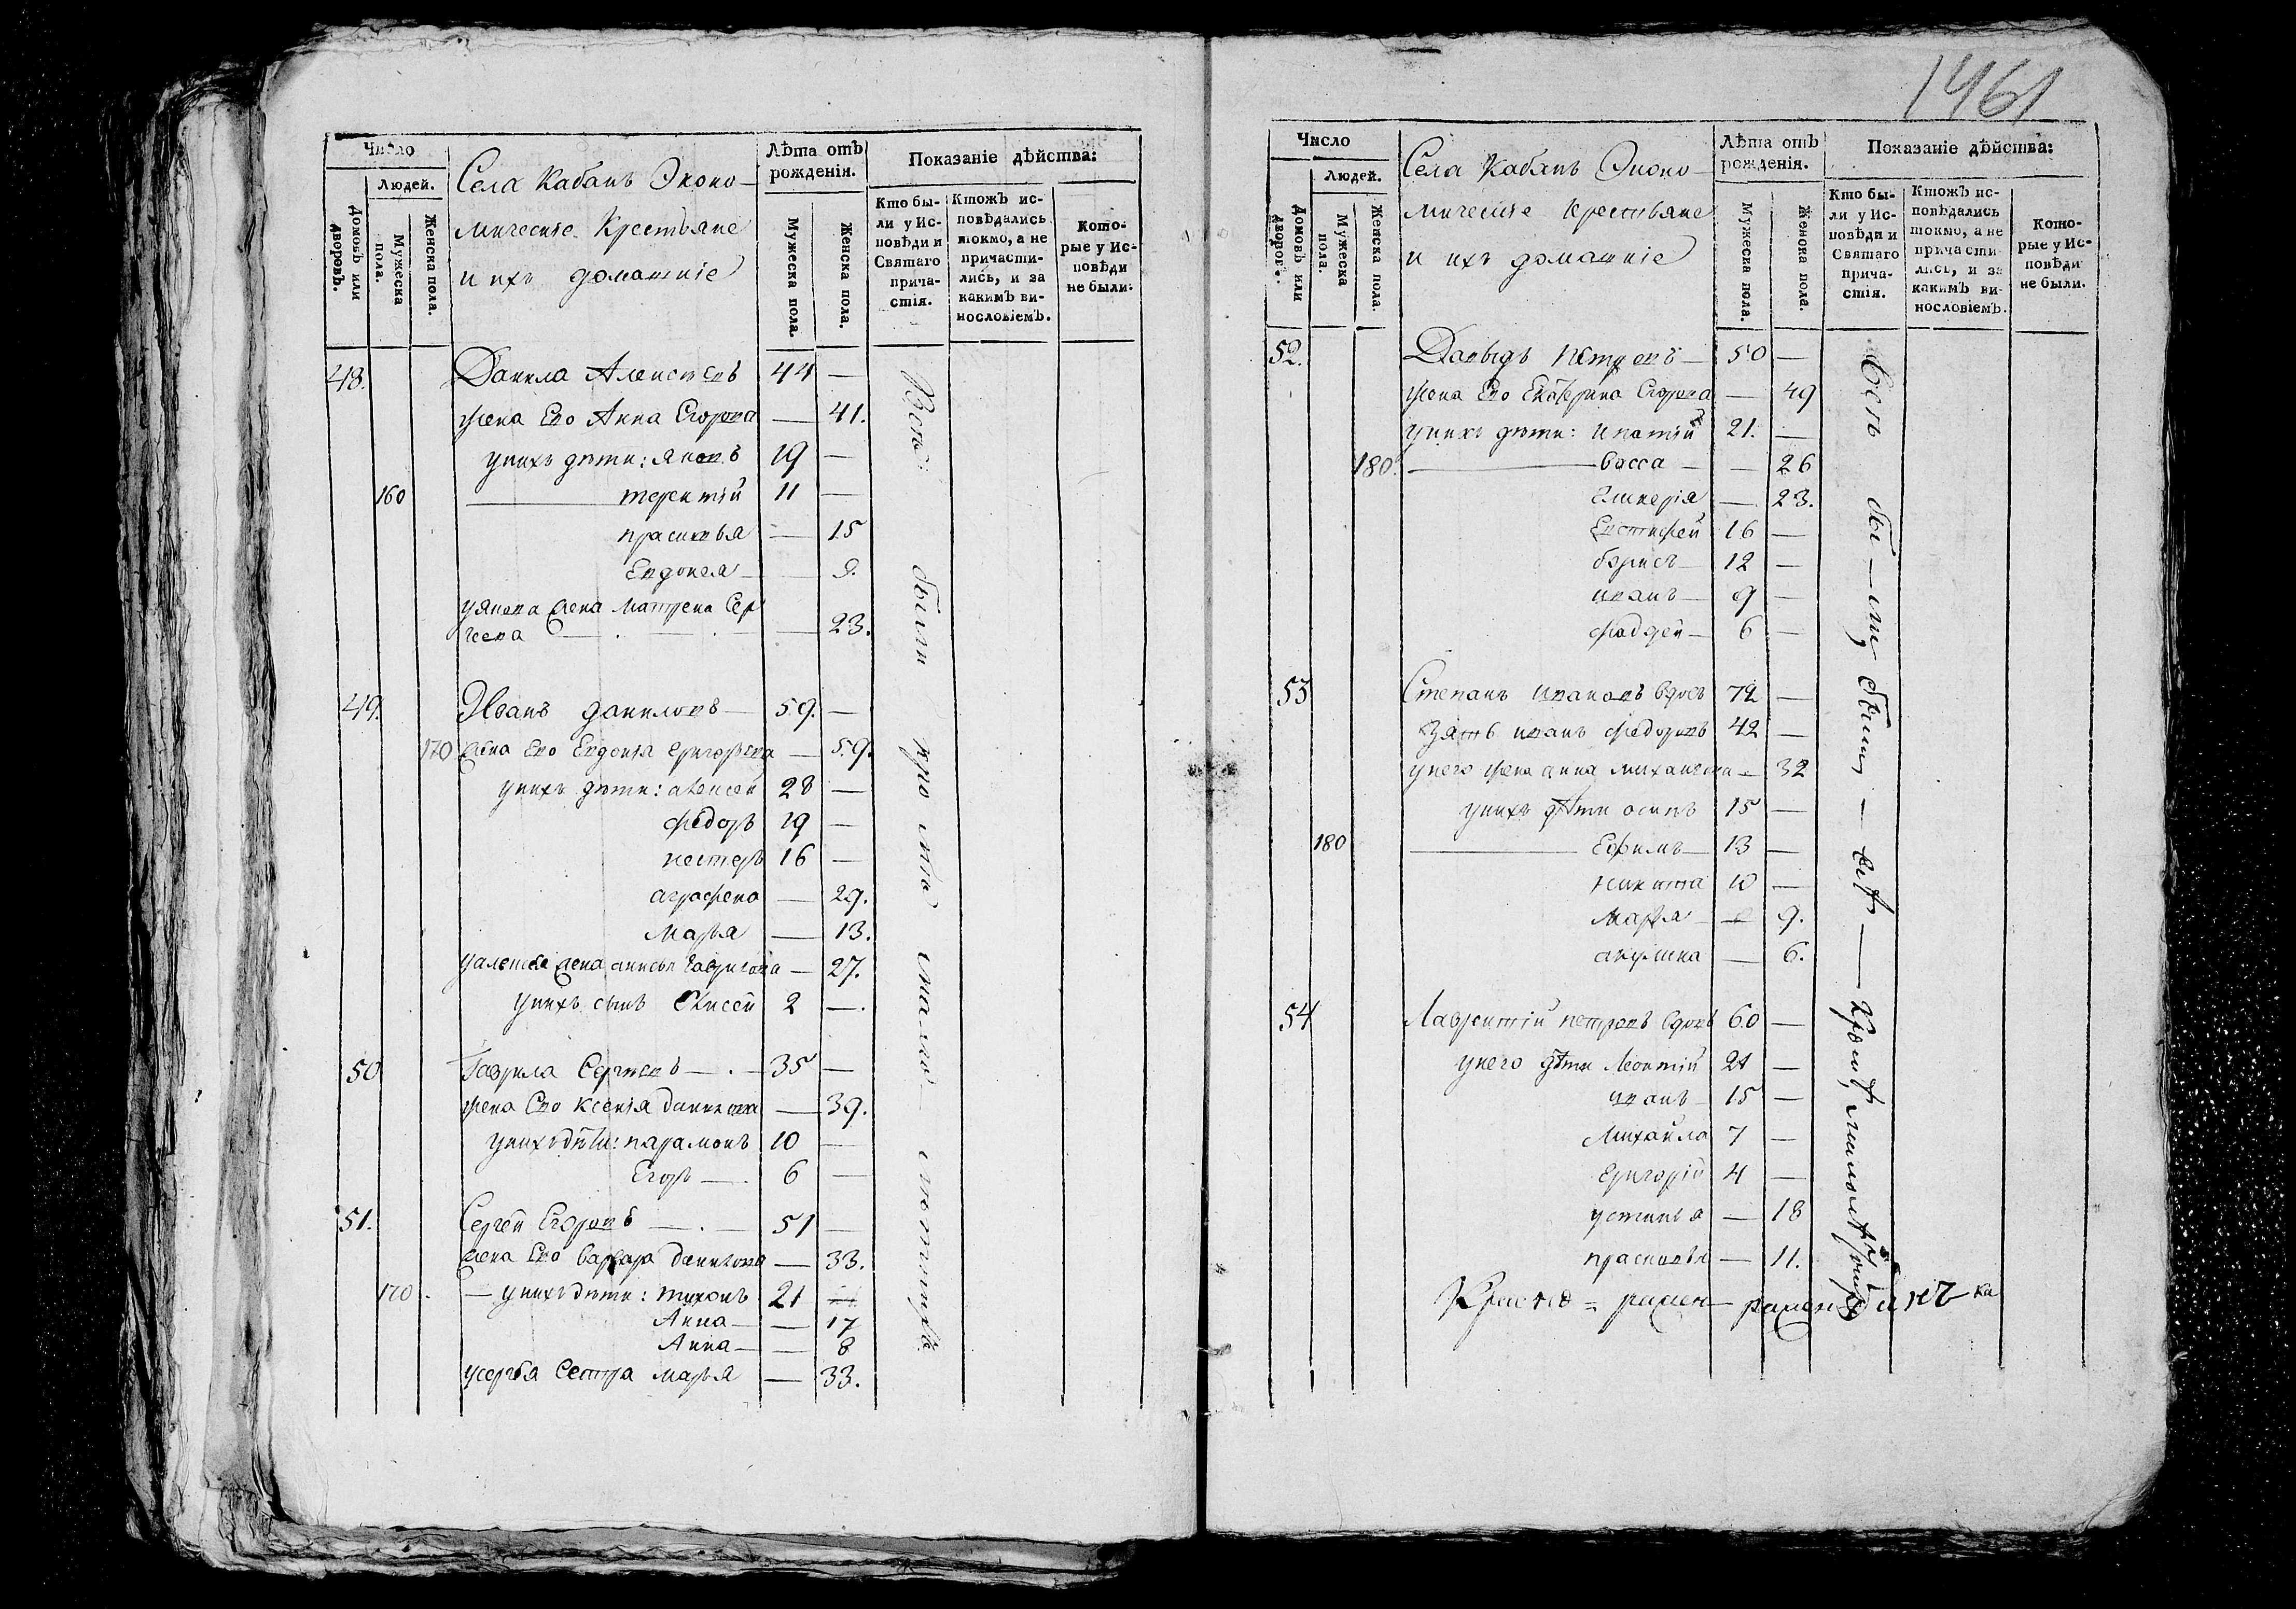 Число
Людей.
Домовъ или дворовъ.
Мужеска пола.
Женска пола.
Села Кабанъ Эконо-
мическіе Крестьяне
и ихъ домашніе
Лѣта отъ рожденія.
Мужеска пола.
Женска пола.
Показаніе дѣйства:
Кто бы-
ли у Ис-
повѣди и
Святаго
прича-
стія.
Ктожъ ис-
повѣдались
токмо, а не
причасти-
лись, и за
какимъ ви-
нословіемъ.
Кото-
рые у Ис-
повѣди
не были.
48. Данила Алексѣевъ 44 —
жена Ево Анна Егорова — 41.
унихъ дѣти: Яковъ 19 —
160 терентій 11 —
прасковья — 15
Евдокея — 9.
уякова жена Матрена Сер
геева — 23.
49. Иванъ даниловъ 59. —
170 жена Ево Евдокея григорьева — 59.
унихъ дѣти: алексей 28 —
федоръ 19 —
нестеръ 16 —
аграфена — 29.
Марья — 13.
уалексея жена анисья гаврилова — 27.
унихъ сынъ 2 —
50 Гаврила Сергеевъ 35 —
жена Ево Ксенія данилова — 39.
унихъ дѣти: парамонъ 10 —
Егоръ 6 —
51. Сергей Егоровъ 51 —
жена Ево варвара данилова — 33.
170 унихъ дѣти: тихонъ 21 —
Анна — 17
Анна — 8
усергѣя Сестра марья — 33.
были кро мѣ мало лѣтныхъ
1461
Число
Людей.
Домовъ или дворовъ.
Мужеска пола.
Женска пола.
Села Кабанъ Эконо-
мическіе Крестьяне
и ихъ домашніе
Лѣта отъ рожденія.
Мужеска пола.
Женска пола.
Показаніе дѣйства:
Кто бы-
ли у Ис-
повѣди и
Святаго
прича-
стія.
Ктожъ ис-
повѣдались
токмо, а не
причасти-
лись, и за
какимъ ви-
нословіемъ.
Кото-
рые у Ис-
повѣди
не были.
52. Давыдъ Петровъ 50 —
жена Ево Екатерина Егорова — 49
унихъ дѣти: ипатій 21. —
180. васса — 26
гликерія — 23.
Евстифей 16 —
борисъ 12 —
иванъ 9 —
фадей 6 —
53 Степанъ ивановъ вдовъ 72 —
зять иванъ федоровъ 42 —
унего жена анна михайлова — 32
унихъ дѣти осипъ 15 —
180 Ефимъ 13 —
никита 10 —
Марья — 9.
акулина — 6.
54 Лаврентій петровъ вдовъ 60 —
унего дѣти Леонтій 21 —
иванъ 15 —
Михайла 7 —
григорій 4 —
устинья — 18
прасковья — 11.